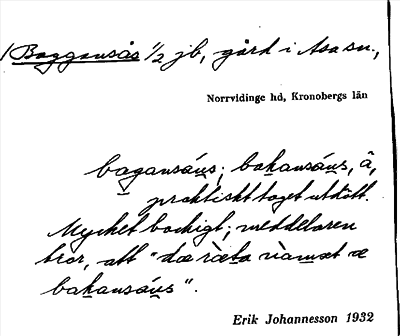 Baggansås 1/2 jb, gård i Asa sn.,
Norrvidinge hd, Kronobergs län
bagansáus; bakansáus, â,
praktiskt taget utdött.
Mycket backigt; meddelaren
tror, att "dæ ræta nàmnet æ
bakansáus".
Erik Johannesson 1932